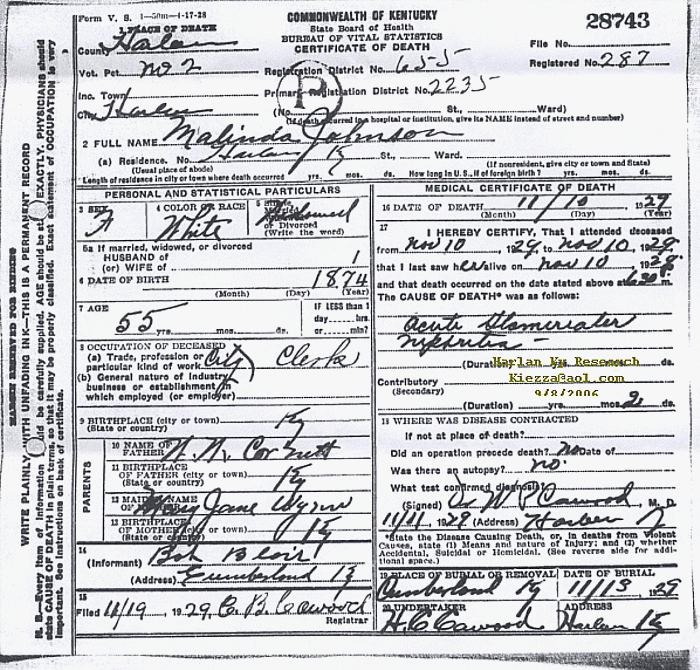 Form V. S. 1—50m—4-17-28
COMMONWEALTH OF KENTUCKY
State Board of Health
BUREAU OF VITAL STATISTICS
CERTIFICATE OF DEATH
28743
File No.
Registered No. 287
1 PLACE OF DEATH
County Harlan
Vot. Pct. No 2
Registration District No. 655
Inc. Town
Primary Registration District No. 2235
City Harlan
(No. St., Ward)
(If death occurred in a hospital or institution, give its NAME instead of street and number)
2 FULL NAME Malinda Johnson
(a) Residence. No. Harlan Ky St., Ward.
(Usual place of abode) (If nonresident, give city or town and State)
Length of residence in city or town where death occurred yrs. mos. ds. How long in U.S., if of foreign birth? yrs. mos. ds.
PERSONAL AND STATISTICAL PARTICULARS
3 SEX
4 COLOR OR RACE White
5 Single Married Widowed or Divorced (Write the word)
5a If married, widowed, or divorced
HUSBAND of
(or) WIFE of
6 DATE OF BIRTH 1874
(Month) (Day) (Year)
7 AGE 55 yrs. mos. ds.
IF LESS than 1 day hrs. or min?
8 OCCUPATION OF DECEASED
(a) Trade, profession or particular kind of work City Clerk
(b) General nature of industry, business or establishment in which employed (or employer)
9 BIRTHPLACE (city or town) Ky
(State or country)
PARENTS
10 NAME OF FATHER N. N. Cornett
11 BIRTHPLACE OF FATHER (city or town) Ky
(State or country)
12 MAIDEN NAME OF MOTHER Mary Jane Wynn
13 BIRTHPLACE OF MOTHER (city or town) Ky
(State or country)
14 (Informant) Bob Blair
(Address) Cumberland Ky
15 Filed 11/19, 1929, C. B. Cawood
Registrar
MEDICAL CERTIFICATE OF DEATH
16 DATE OF DEATH 11/10 1929
(Month) (Day) (Year)
17 I HEREBY CERTIFY, That I attended deceased
from Nov 10, 1929, to Nov 10, 1929,
that I last saw her alive on Nov 10, 1929,
and that death occurred on the date stated above at m.
The CAUSE OF DEATH* was as follows:
Acute Glomerular
Nephritis
Harlan Ky Research
Kiezza@aol.com
9/8/2006
(Duration) yrs. mos. ds.
Contributory
(Secondary)
(Duration) yrs. mos. 2 ds.
18 WHERE WAS DISEASE CONTRACTED
If not at place of death?
Did an operation precede death? No Date of
Was there an autopsy? No.
What test confirmed diagnosis?
(Signed) W P Cawood, M. D.
11/11, 1929 (Address) Harlan Ky
*State the Disease Causing Death, or, in deaths from Violent Causes, state (1) Means and nature of Injury; and (2) whether Accidental, Suicidal or Homicidal. (See reverse side for additional space.)
19 PLACE OF BURIAL OR REMOVAL Cumberland Ky
DATE OF BURIAL 11/13 1929
20 UNDERTAKER H C Cawood
ADDRESS Harlan Ky
MARGIN RESERVED FOR BINDING
WRITE PLAINLY WITH UNFADING INK—THIS IS A PERMANENT RECORD
N. B.—Every item of information should be carefully supplied. AGE should be stated EXACTLY. PHYSICIANS should state CAUSE OF DEATH in plain terms, so that it may be properly classified. Exact statement of OCCUPATION is very important. See instructions on back of certificate.